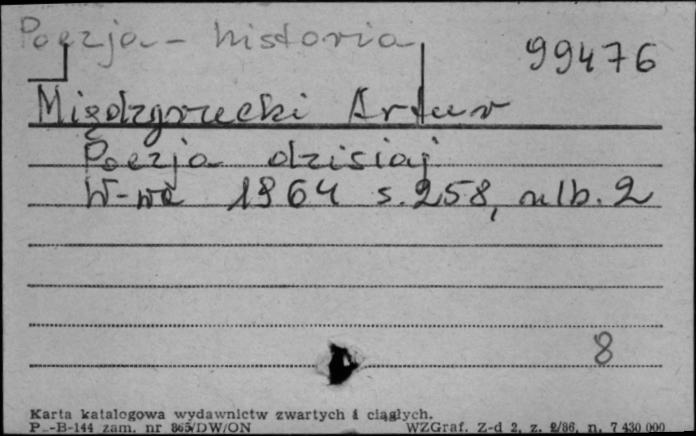 Poezja - historia
99476
Międzyrzecki Artur
Poezja dzisiaj
W-wa 1964 s. 258, nlb. 2
8
Karta katalogowa wydawnictw zwartych i ciągłych.
P.-B-144 zam. nr 865/DW/ON WZGraf. Z-d 2, z. 2/86, n. 7 430 000